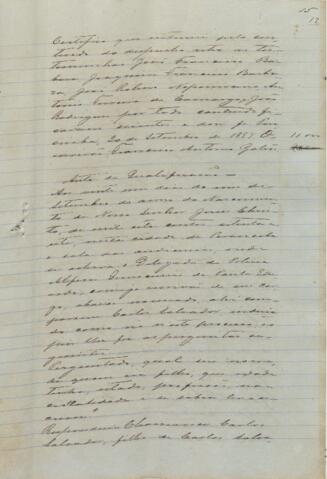 15
12
Certifico que intimei pelo con-
theudo do despacho retro as tes-
temunhas José Francisco Bar-
bosa, Joaquim Francisco Barbo-
za, José Rabino Nepomuceno, An-
tonio Ferreira de Camargo, João
Rodrigues por todo contendo fi-
caram scientes e dou fé.
20 de Setembro de 1887. O
escrivão Francisco Antonio
Auto de Qualificação
Aos vinte um dias do mez de
Setembro do anno do Nascimen-
to de Nosso Senhor Jesus Chris-
to, de mil oito centos oitenta e
sete, nesta cidade de
e sala das audiencias, onde
se achava o Delegado de Policia
Alferes de Paula
comigo escrivão de seu car-
go, abaixo nomeado, ahi com-
pareceu Carlos Salvador,
como reo neste processo, e o
Juiz lhe fez as perguntas se-
guintes:
Perguntado, qual seu nome,
de quem era filho, que idade
tinha, estado, profissão, na-
cionalidade e se sabia ler e es-
crever?
Respondeu Chamar-se Carlos
Salvador, filho de Carlos Salva-